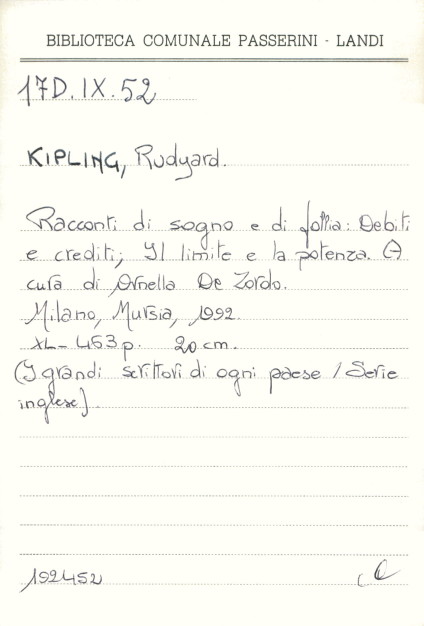 BIBLIOTECA COMUNALE PASSERINI - LANDI
17D.IX.52
KIPLING, Rudyard.
Racconti di sogno e di follia: Debiti
e crediti; Il limite e la potenza. A
cura di Ornella De Zordo.
Milano, Mursia, 1992.
XL-463 p. 20 cm.
(I grandi scrittori di ogni paese / Serie
inglese)
192452